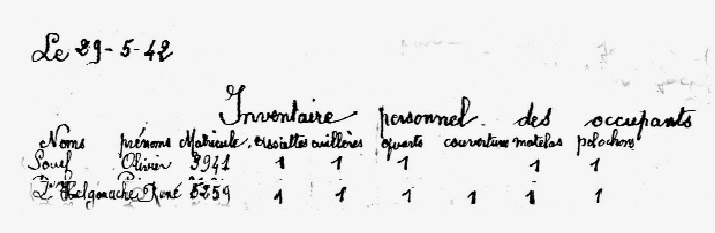 Le 29-5-42
Inventaire personnel des occupants
Noms prénoms Matricule. assiettes cuillères quarts couverture matelas polochons
Souef Olivier 3941 1 1 1 1 1
L'Helgouache René 5259 1 1 1 1 1 1